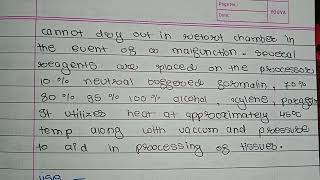 Page No.
Date
YOUVA
cannot dry out in retort chamber in
the event of a malfunction. Several
reagents are placed on the processor
10 % neutral buffered formalin, 70%
80 % 95 % 100 % alcohol, xylene, paraffin
It utilizes heat at approximately 45%
temp along with vaccum and pressure
to aid in processing of tissues.